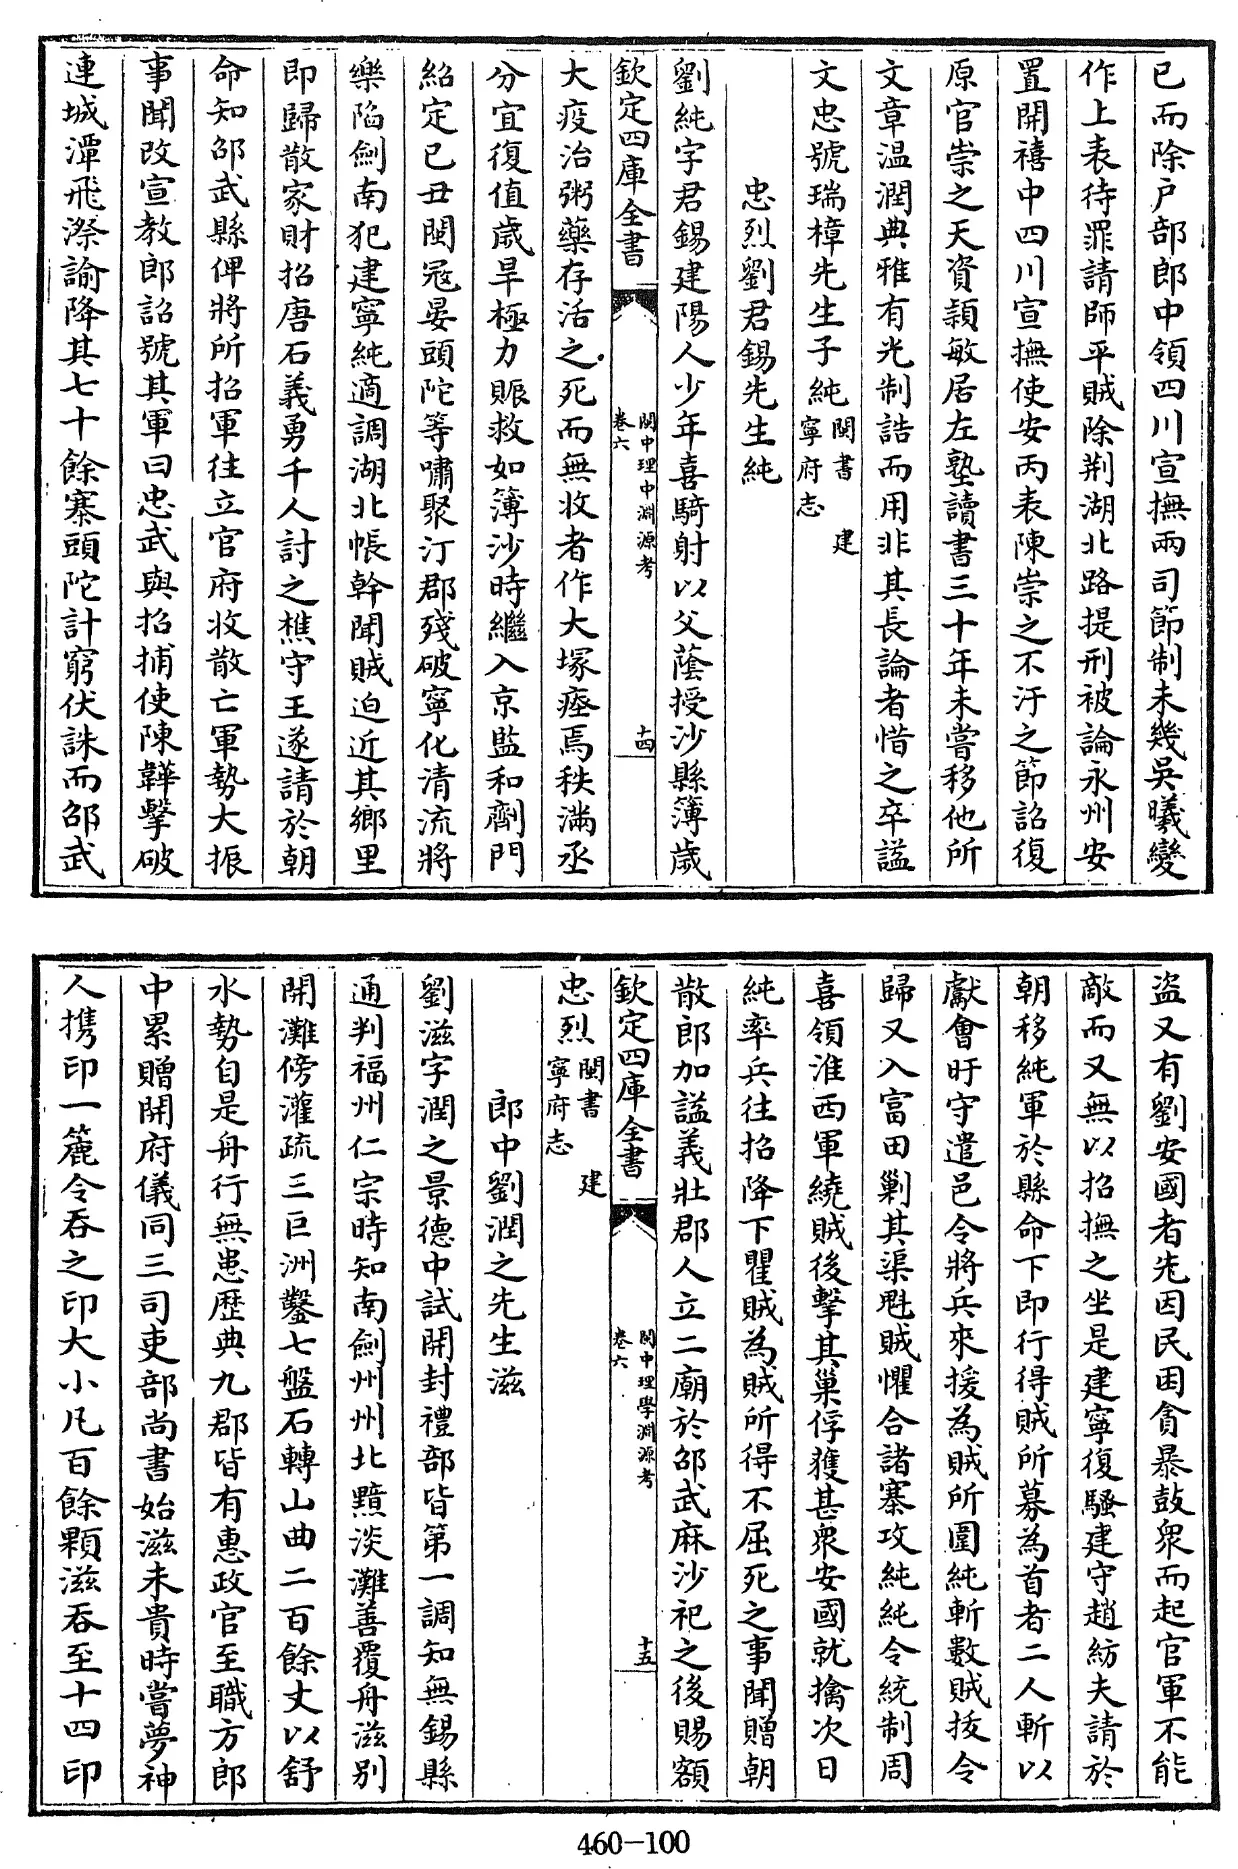 已而除户部郎中領四川宣撫兩司節制未幾吳曦變
作上表待罪請師平賊除荆湖北路提刑被論永州安
置開禧中四川宣撫使安丙表陳崇之不汙之節詔復
原官崇之天資頴敏居左塾讀書三十年未嘗移他所
文章温潤典雅有光制誥而用非其長論者惜之卒諡
文忠號瑞樟先生子純閩書 建寧府志
忠烈劉君錫先生純
劉純字君錫建陽人少年喜騎射以父蔭授沙縣簿歲
欽定四庫全書 閩中理中淵源考 卷六 十四
大疫治粥藥存活之死而無收者作大塚瘞焉秩滿丞
分宜復值歲旱極力賑救如簿沙時繼入京監和劑門
紹定己丑閩冦晏頭陀等嘯聚汀郡殘破寧化清流將
樂陷劍南犯建寧純適調湖北帳幹聞賊迫近其鄉里
即歸散家財招唐石義勇千人討之樵守王遂請於朝
命知邵武縣俾將所招軍徃立官府收散亡軍勢大振
事聞改宣教郎詔號其軍曰忠武與招捕使陳韡擊破
連城潭飛漈諭降其七十餘寨頭陀計窮伏誅而邵武
盜又有劉安國者先因民困貪暴鼓衆而起官軍不能
敵而又無以招撫之坐是建寧復騷建守趙紡夫請於
朝移純軍於縣命下即行得賊所募為首者二人斬以
獻會盱守遣邑令將兵來援為賊所圍純斬數賊拔令
歸又入富田剿其渠魁賊懼合諸寨攻純純令統制周
喜領淮西軍繞賊後擊其巢俘獲甚衆安國就擒次日
純率兵往招降下瞿賊為賊所得不屈死之事聞贈朝
散郎加諡義壯郡人立二廟於邵武麻沙祀之後賜額
欽定四庫全書 閩中理學淵源考 卷六 十五
忠烈閩書 建寧府志
郎中劉潤之先生滋
劉滋字潤之景德中試開封禮部皆第一調知無錫縣
通判福州仁宗時知南劍州州北黯淡灘善覆舟滋别
開灘傍灌疏三巨洲鑿七盤石轉山曲二百餘丈以舒
水勢自是舟行無患歷典九郡皆有惠政官至職方郎
中累贈開府儀同三司吏部尚書始滋未貴時嘗夢神
人携印一簏令吞之印大小凡百餘顆滋吞至十四印
460-100